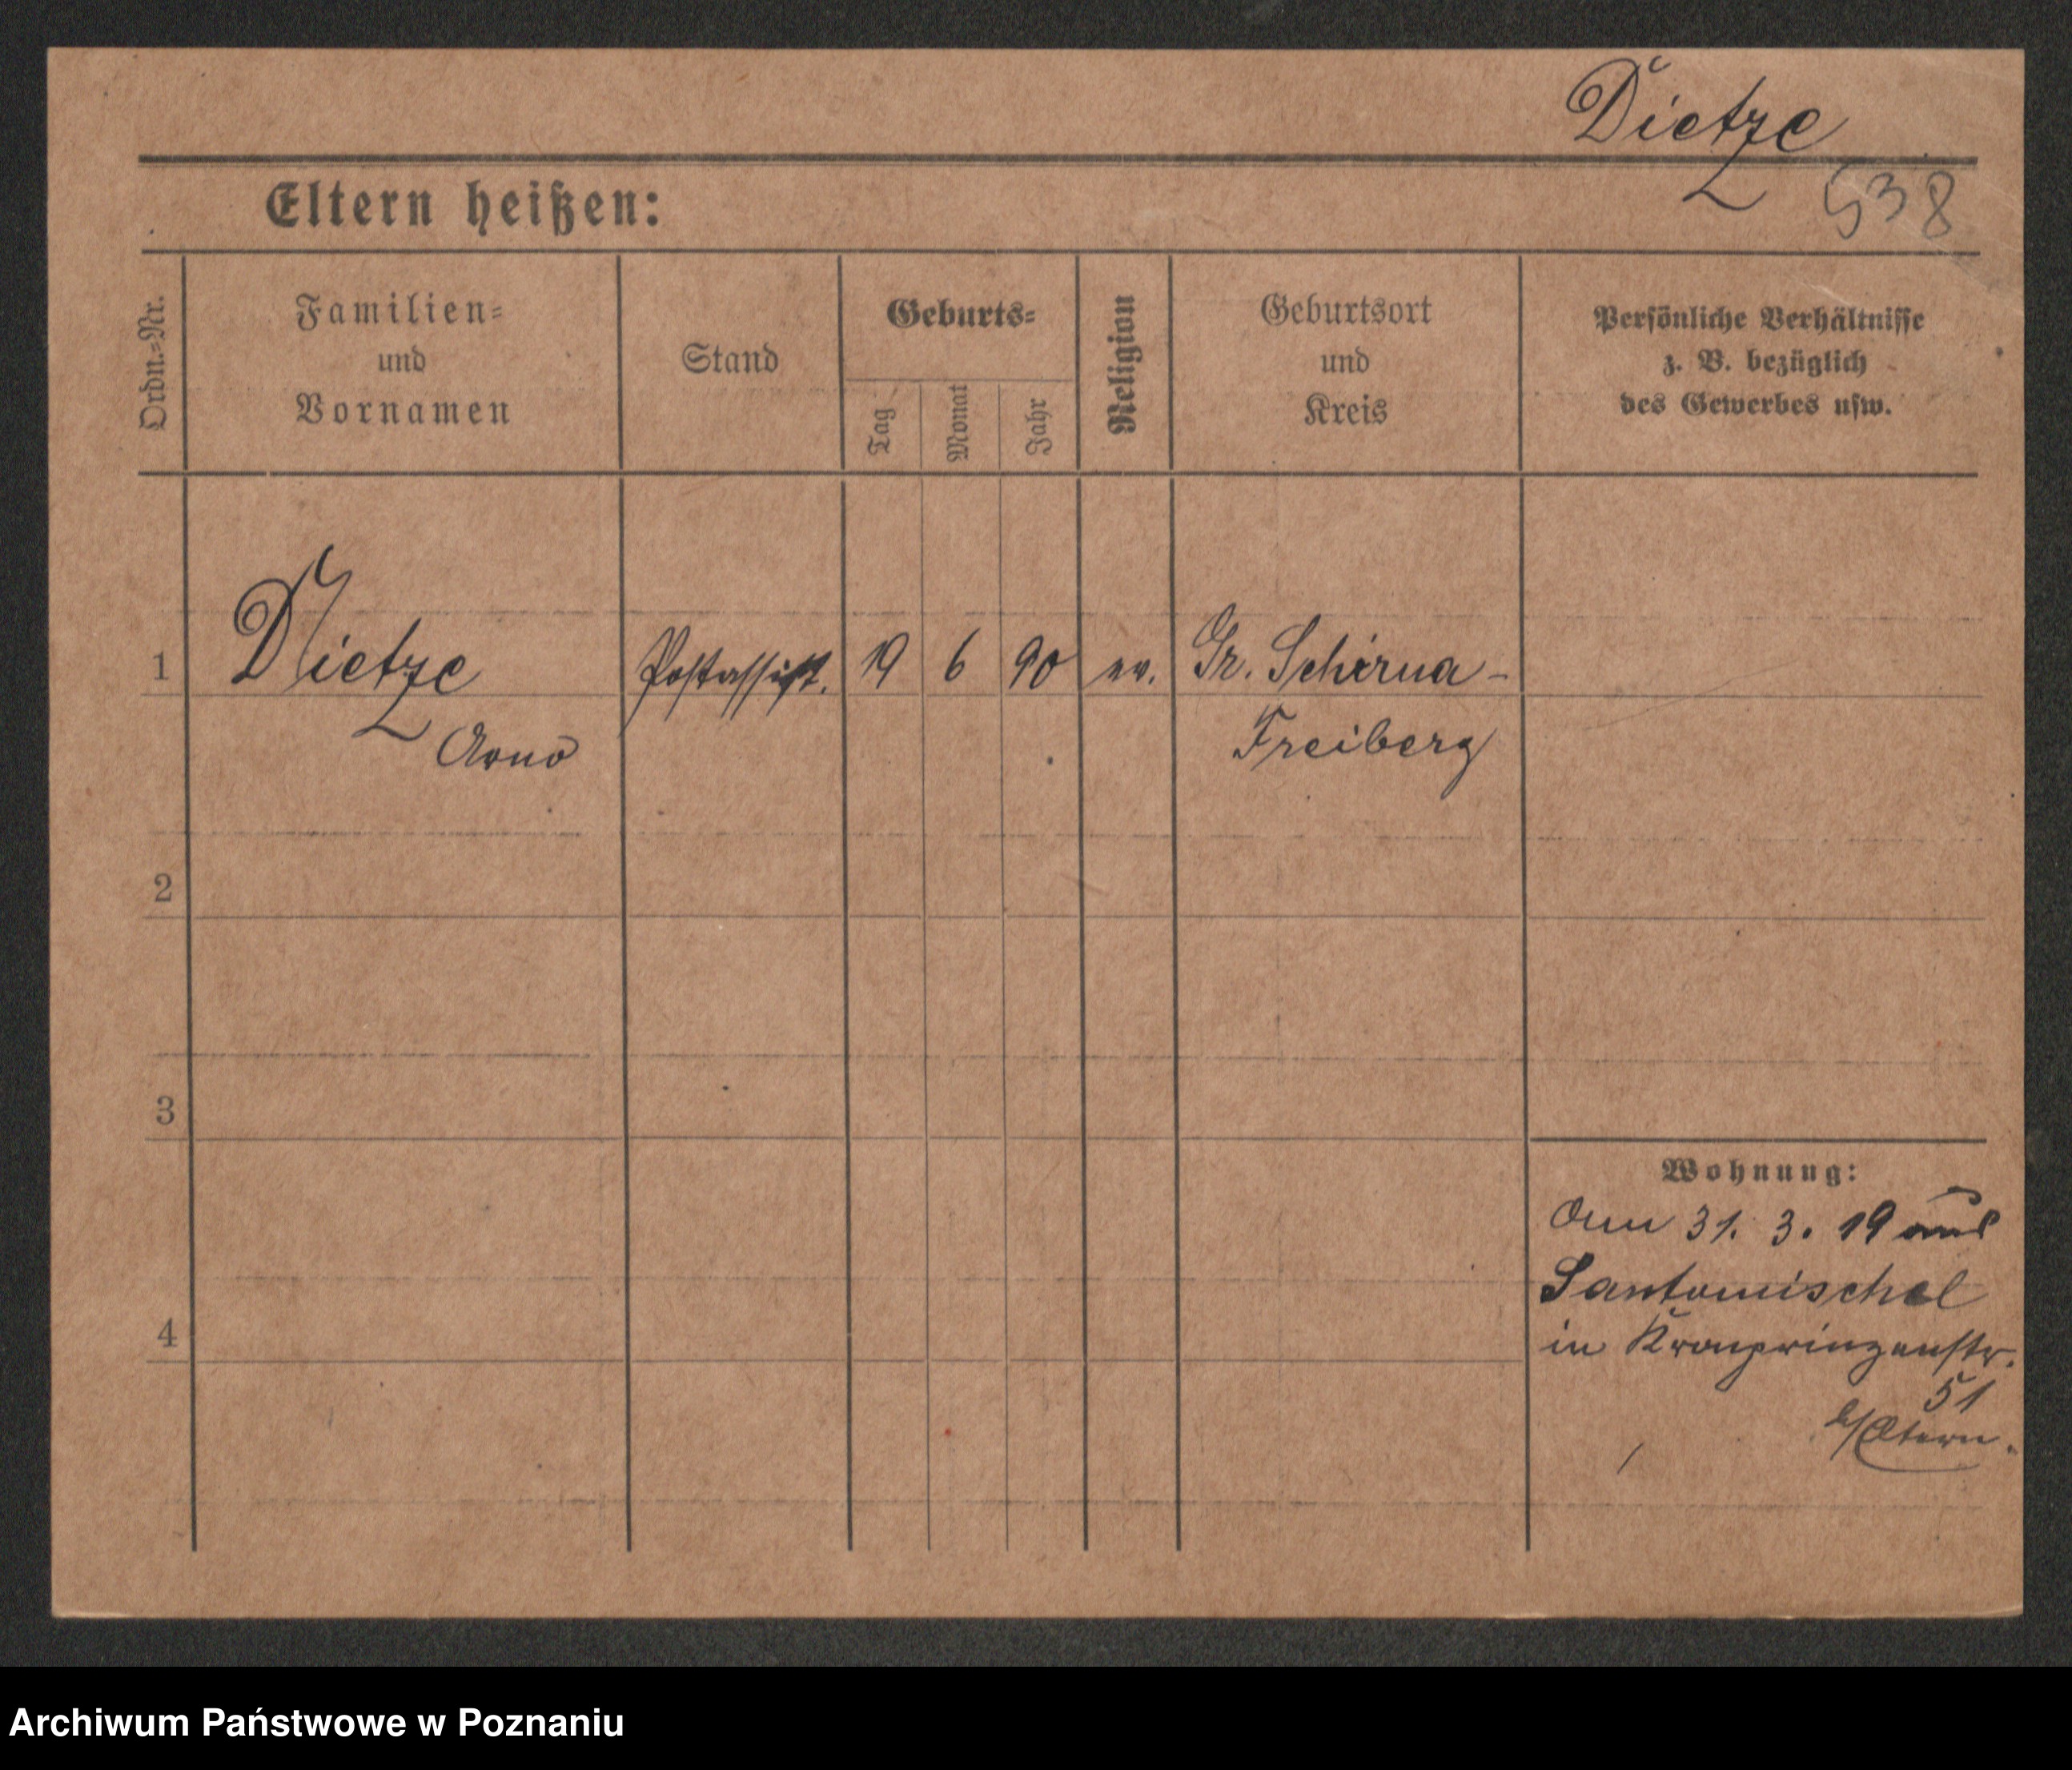 Dietze
538
Eltern heißen:
Ordn.-Nr.
Familien-
und
Vornamen
Stand
Geburts-
Tag
Monat
Jahr
Religion
Geburtsort
und
Kreis
Persönliche Verhältnisse
z. B. bezüglich
des Gewerbes usw.
1 Dietze Postassist. 19 6 90 ev. Gr. Schirma-
Arno Freiberg
2
3
Wohnung:
31. 3. 19 aus
Santomischel
in Kronprinzenstr.
51
b/Eltern.
4
Archiwum Państwowe w Poznaniu